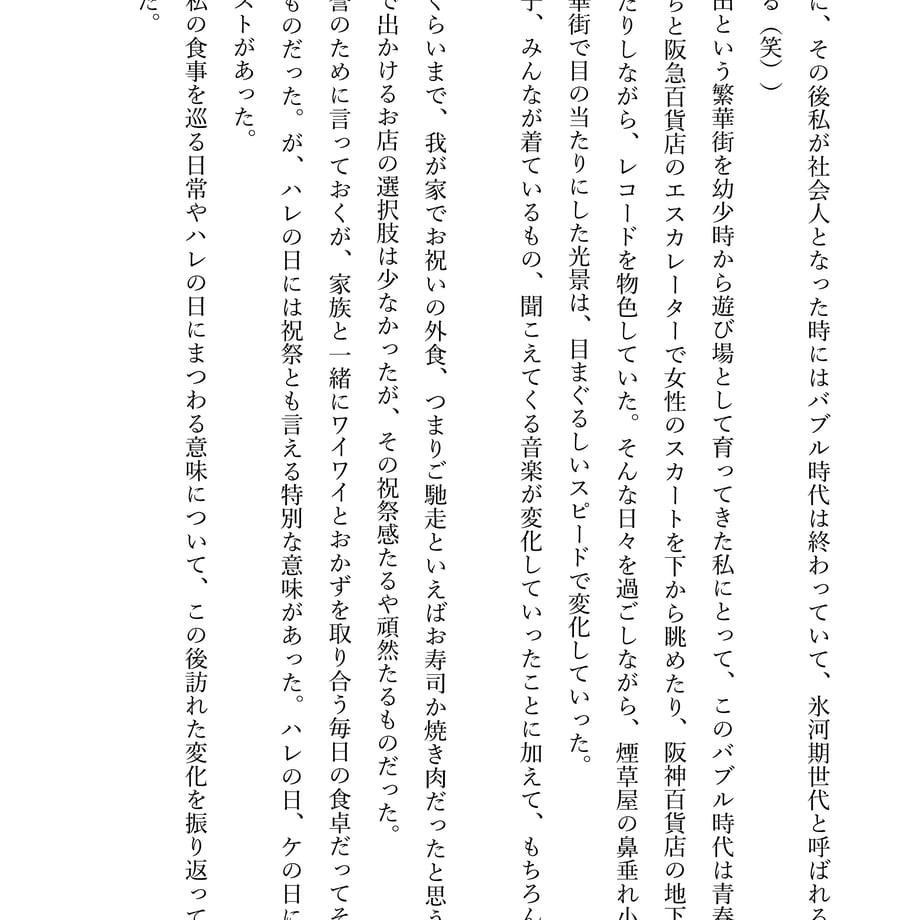 に、その後私が社会人となった時にはバブル時代は終わっていて、氷河期世代と呼ばれる
る（笑））
田という繁華街を幼少時から遊び場として育ってきた私にとって、このバブル時代は青春
ちと阪急百貨店のエスカレーターで女性のスカートを下から眺めたり、阪神百貨店の地下
たりしながら、レコードを物色していた。そんな日々を過ごしながら、煙草屋の鼻垂れ小
華街で目の当たりにした光景は、目まぐるしいスピードで変化していった。
子、みんなが着ているもの、聞こえてくる音楽が変化していったことに加えて、もちろん
くらいまで、我が家でお祝いの外食、つまりご馳走といえばお寿司か焼き肉だったと思う
で出かけるお店の選択肢は少なかったが、その祝祭感たるや頑然たるものだった。
誉のために言っておくが、家族と一緒にワイワイとおかずを取り合う毎日の食卓だってそ
ものだった。が、ハレの日には祝祭とも言える特別な意味があった。ハレの日、ケの日に
ストがあった。
私の食事を巡る日常やハレの日にまつわる意味について、この後訪れた変化を振り返って
た。